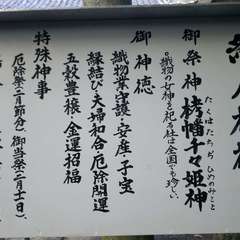 御祭神 栲幡千々姫神
たくはたちぢひめのみこと
○織物の女神を祀る社は全国でも珍しい。
御神徳
織物業守護・安産・子宝
縁結び・夫婦和合・厄除開運
五穀豊穣・金運招福
特殊神事
厄除祭(二月節分)御当祭(二月十一日)、